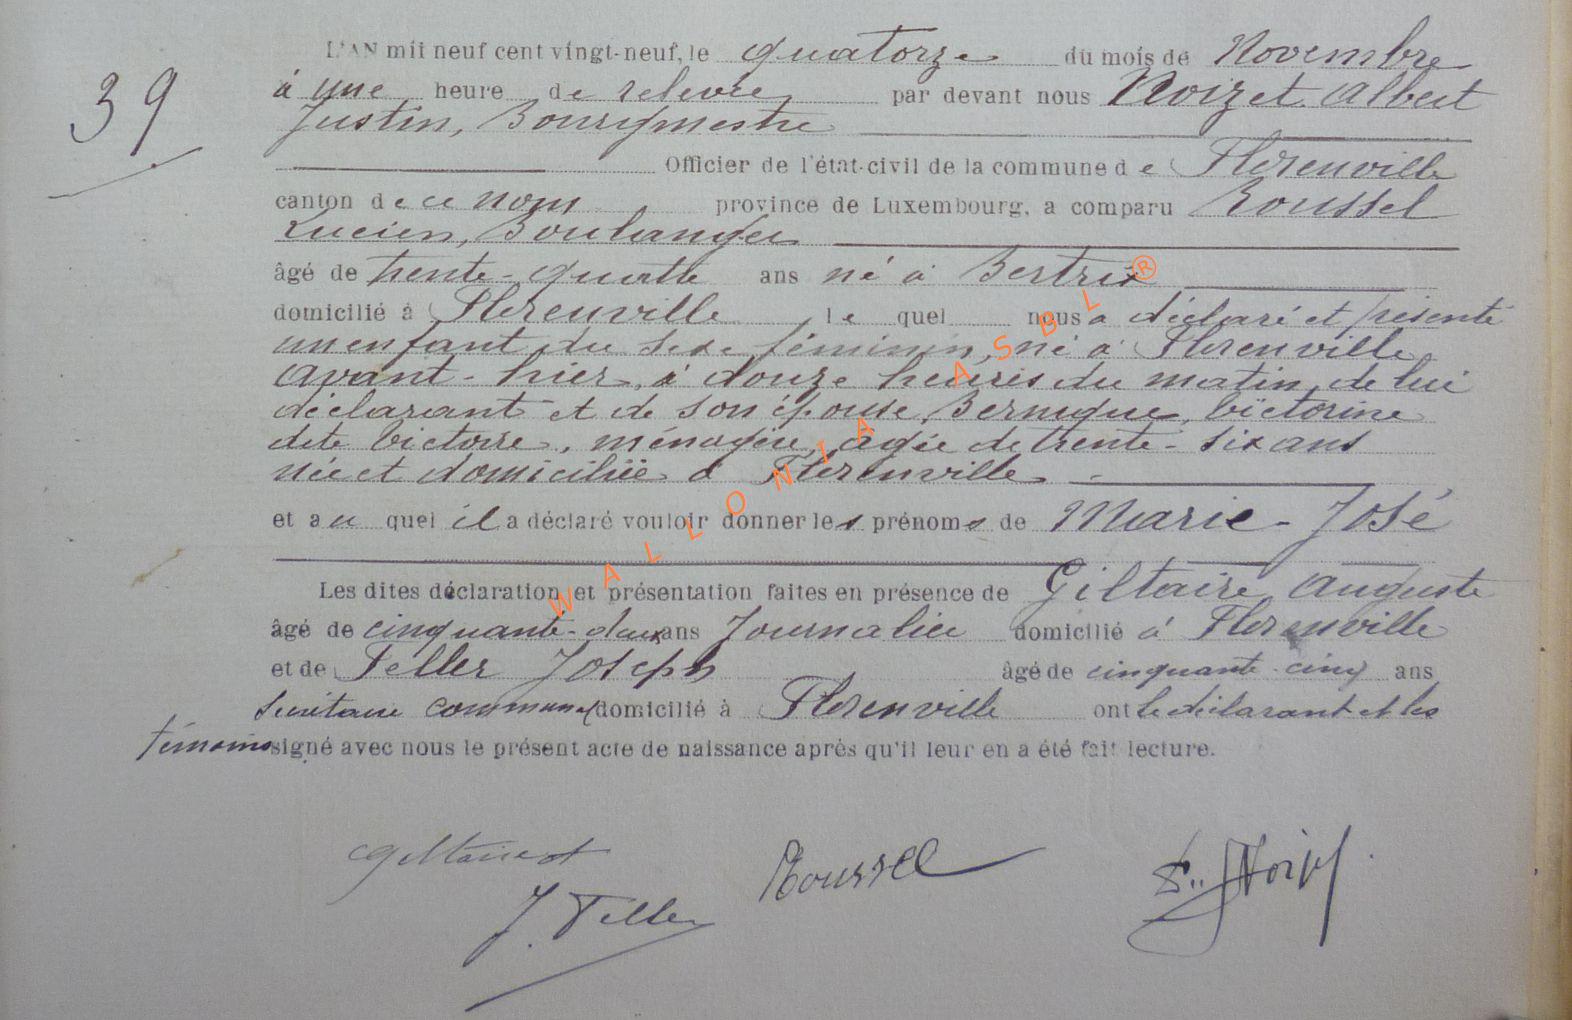 39
L'AN mil neuf cent vingt-neuf, le quatorze du mois de Novembre
à une heure de relevée par devant nous Noizet Albert
Justin, Bourgmestre
Officier de l'état-civil de la commune de Florenville
canton de ce nom province de Luxembourg, a comparu Roussel
Lucien, Boulanger
âgé de trente-quatre ans né à Bertrix
domicilié à Florenville le quel nous a déclaré et présenté
un enfant du sexe féminin, né à Florenville
avant-hier, à douze heures du matin, de lui
déclarant et de son épouse, Bernique, Victorine
dite Victoire, ménagère, agée de trente-six ans
née et domiciliée à Florenville
et au quel il a déclaré vouloir donner les prénoms de Marie-José
Les dites déclaration et présentation faites en présence de Giltaire Auguste
âgé de cinquante-deux ans Journalier domicilié à Florenville
et de Feller Joseph âgé de cinquante-cinq ans
secrétaire communal domicilié à Florenville ont le déclarant et les
témoins signé avec nous le présent acte de naissance après qu'il leur en a été fait lecture.
WALLONIA ASBL ®
Roussel
J. Feller